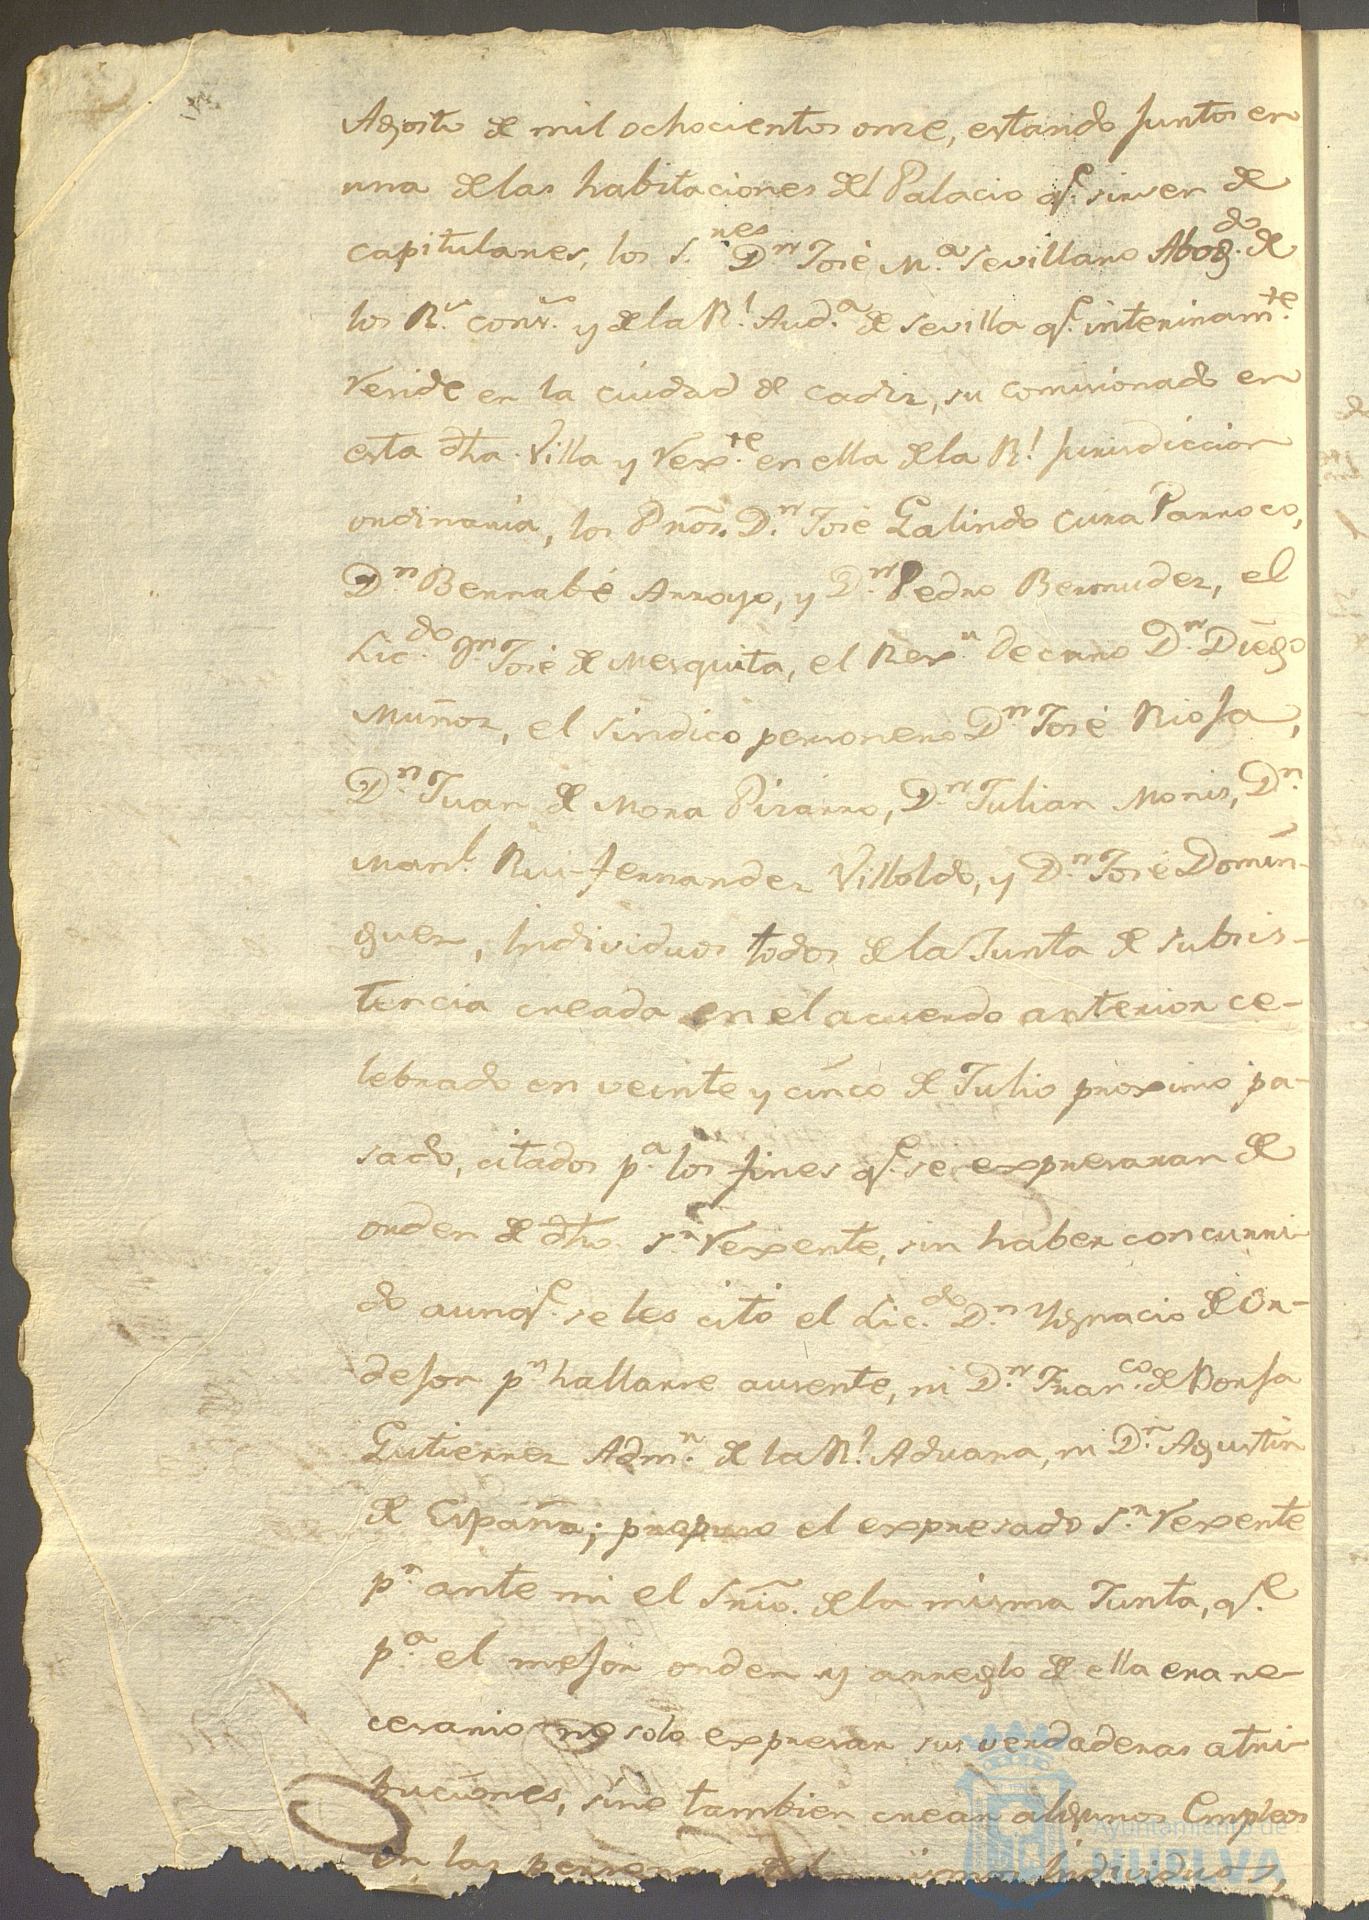 Agosto de mil ochocientos once, estando juntos en
una de las habitaciones del Palacio qe. sirven de
capitulares, los S.res D.n José M.a Sevillano Abog.do de
los R.s cons.s y de la R.l Aud.a de Sevilla qe. interinam.te
reside en la ciudad de Cadiz, su comisionado en
esta dha. Villa y Rex.te en ella de la R.l Jurisdiccion
ordinaria, los Pnos. D.n José Galindo Cura Parroco,
D.n Bernabé Arroyo, y D.n Pedro Bermudez, el
Lic.do D.n José de Mesquita, el Rex.r Decano D.n Diego
Muñoz, el sindico personero D.n José Rioja,
D.n Juan de Mora Pizarro, D.n Julian Monis, D.n
Man.l Rui-fernandez Villoldo, y D.n José Domin-
guez, Individuos todos de la Junta de subsis-
tencia creada en el acuerdo anterior ce-
lebrado en veinte y cinco de Julio proximo pa-
sado, citados p.a los fines qe. se expresaran de
orden de dho. S.r Rexente, sin haber concurri-
do aunqe. se les citó el Lic.do D.n Ygnacio de Or-
dejon p.r hallarse ausente, ni D.n Fran.co de Borja
Gutierrez Adm.r de la R.l Aduana, ni D.n Agustin
de España; propuso el expresado S.r Rexente
p.r ante mi el Srio. de la misma Junta, qe.
p.a el mejor orden y arreglo de ella era ne-
cesario no solo expresar sus verdaderas atri-
buciones, sino tambien crear algunos Empleos
en las personas de los mismos Individuos,
Ayuntamiento de
HUELVA